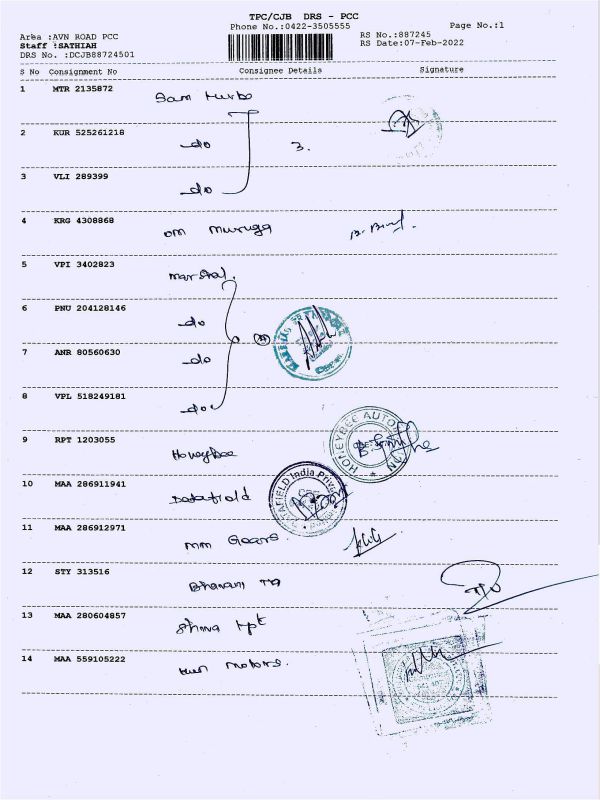 TPC/CJB DRS - PCC
Phone No.:0422-3505555
Page No.:1
Area :AVN ROAD PCC
RS No.:887245
Staff :SATHIAH
RS Date:07-Feb-2022
DRS No. :DCJB88724501
S No Consignment No Consignee Details Signature
1 MTR 2135872 Sam turbo
2 KUR 525261218 do 3.
3 VLI 289399 do
4 KRG 4308868 om muruga
5 VPI 3402823 marshal.
6 PNU 204128146 do
7 ANR 80560630 do
8 VPL 518249181 do
HONEYBEE AUTO
9 RPT 1203055 Honeybee
10 MAA 286911941 Datafield
DATAFIELD India Priv
11 MAA 286912971 mm Gears
12 STY 313516 Bhavani
13 MAA 280604857 Shiva tpt
14 MAA 559105222 motors.